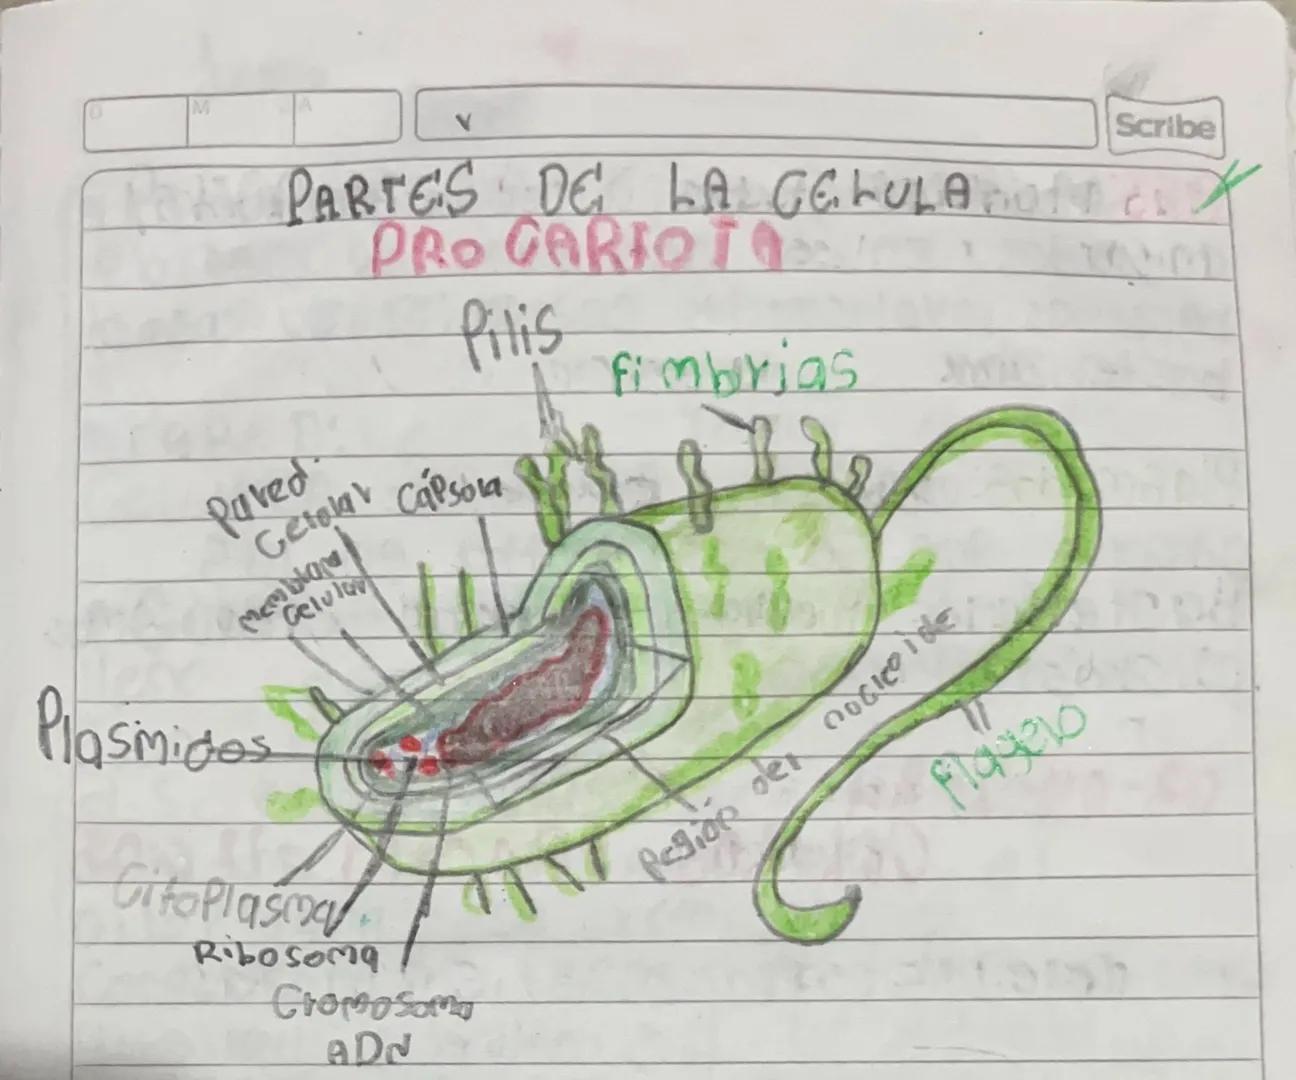 D M A
Scribe
PARTES DE LA CELULA
PROCARIOTA
Pilis
fimbrias
Pared
Celular
Cápsula
membrana
Celular
Plasmidos
Región del nucleoide
Flagelo
Citoplasma
Ribosoma
Cromosoma
ADN